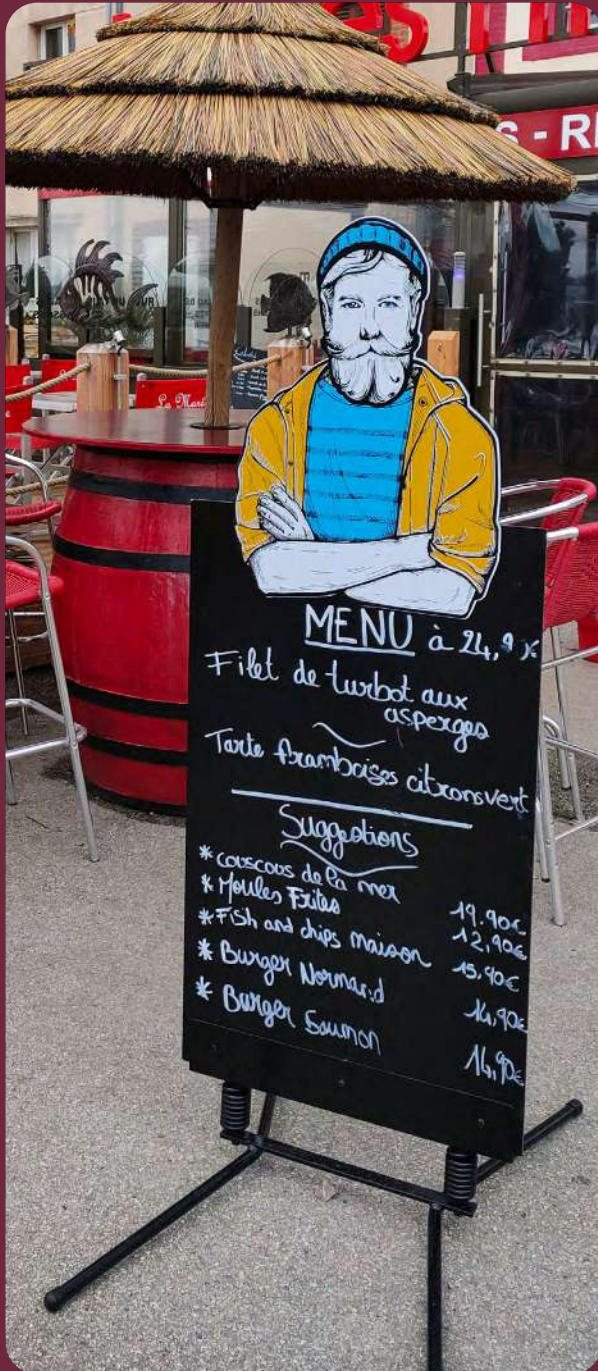 S - R
MENU à 24,
Filet de turbot aux
asperges
Tarte framboises citrons vert
Suggestions
* couscous de la mer 19.90€
* Moules Frites 12,90€
* Fish and chips maison 15,90€
* Burger Normand 14,90€
* Burger Saumon 16,90€